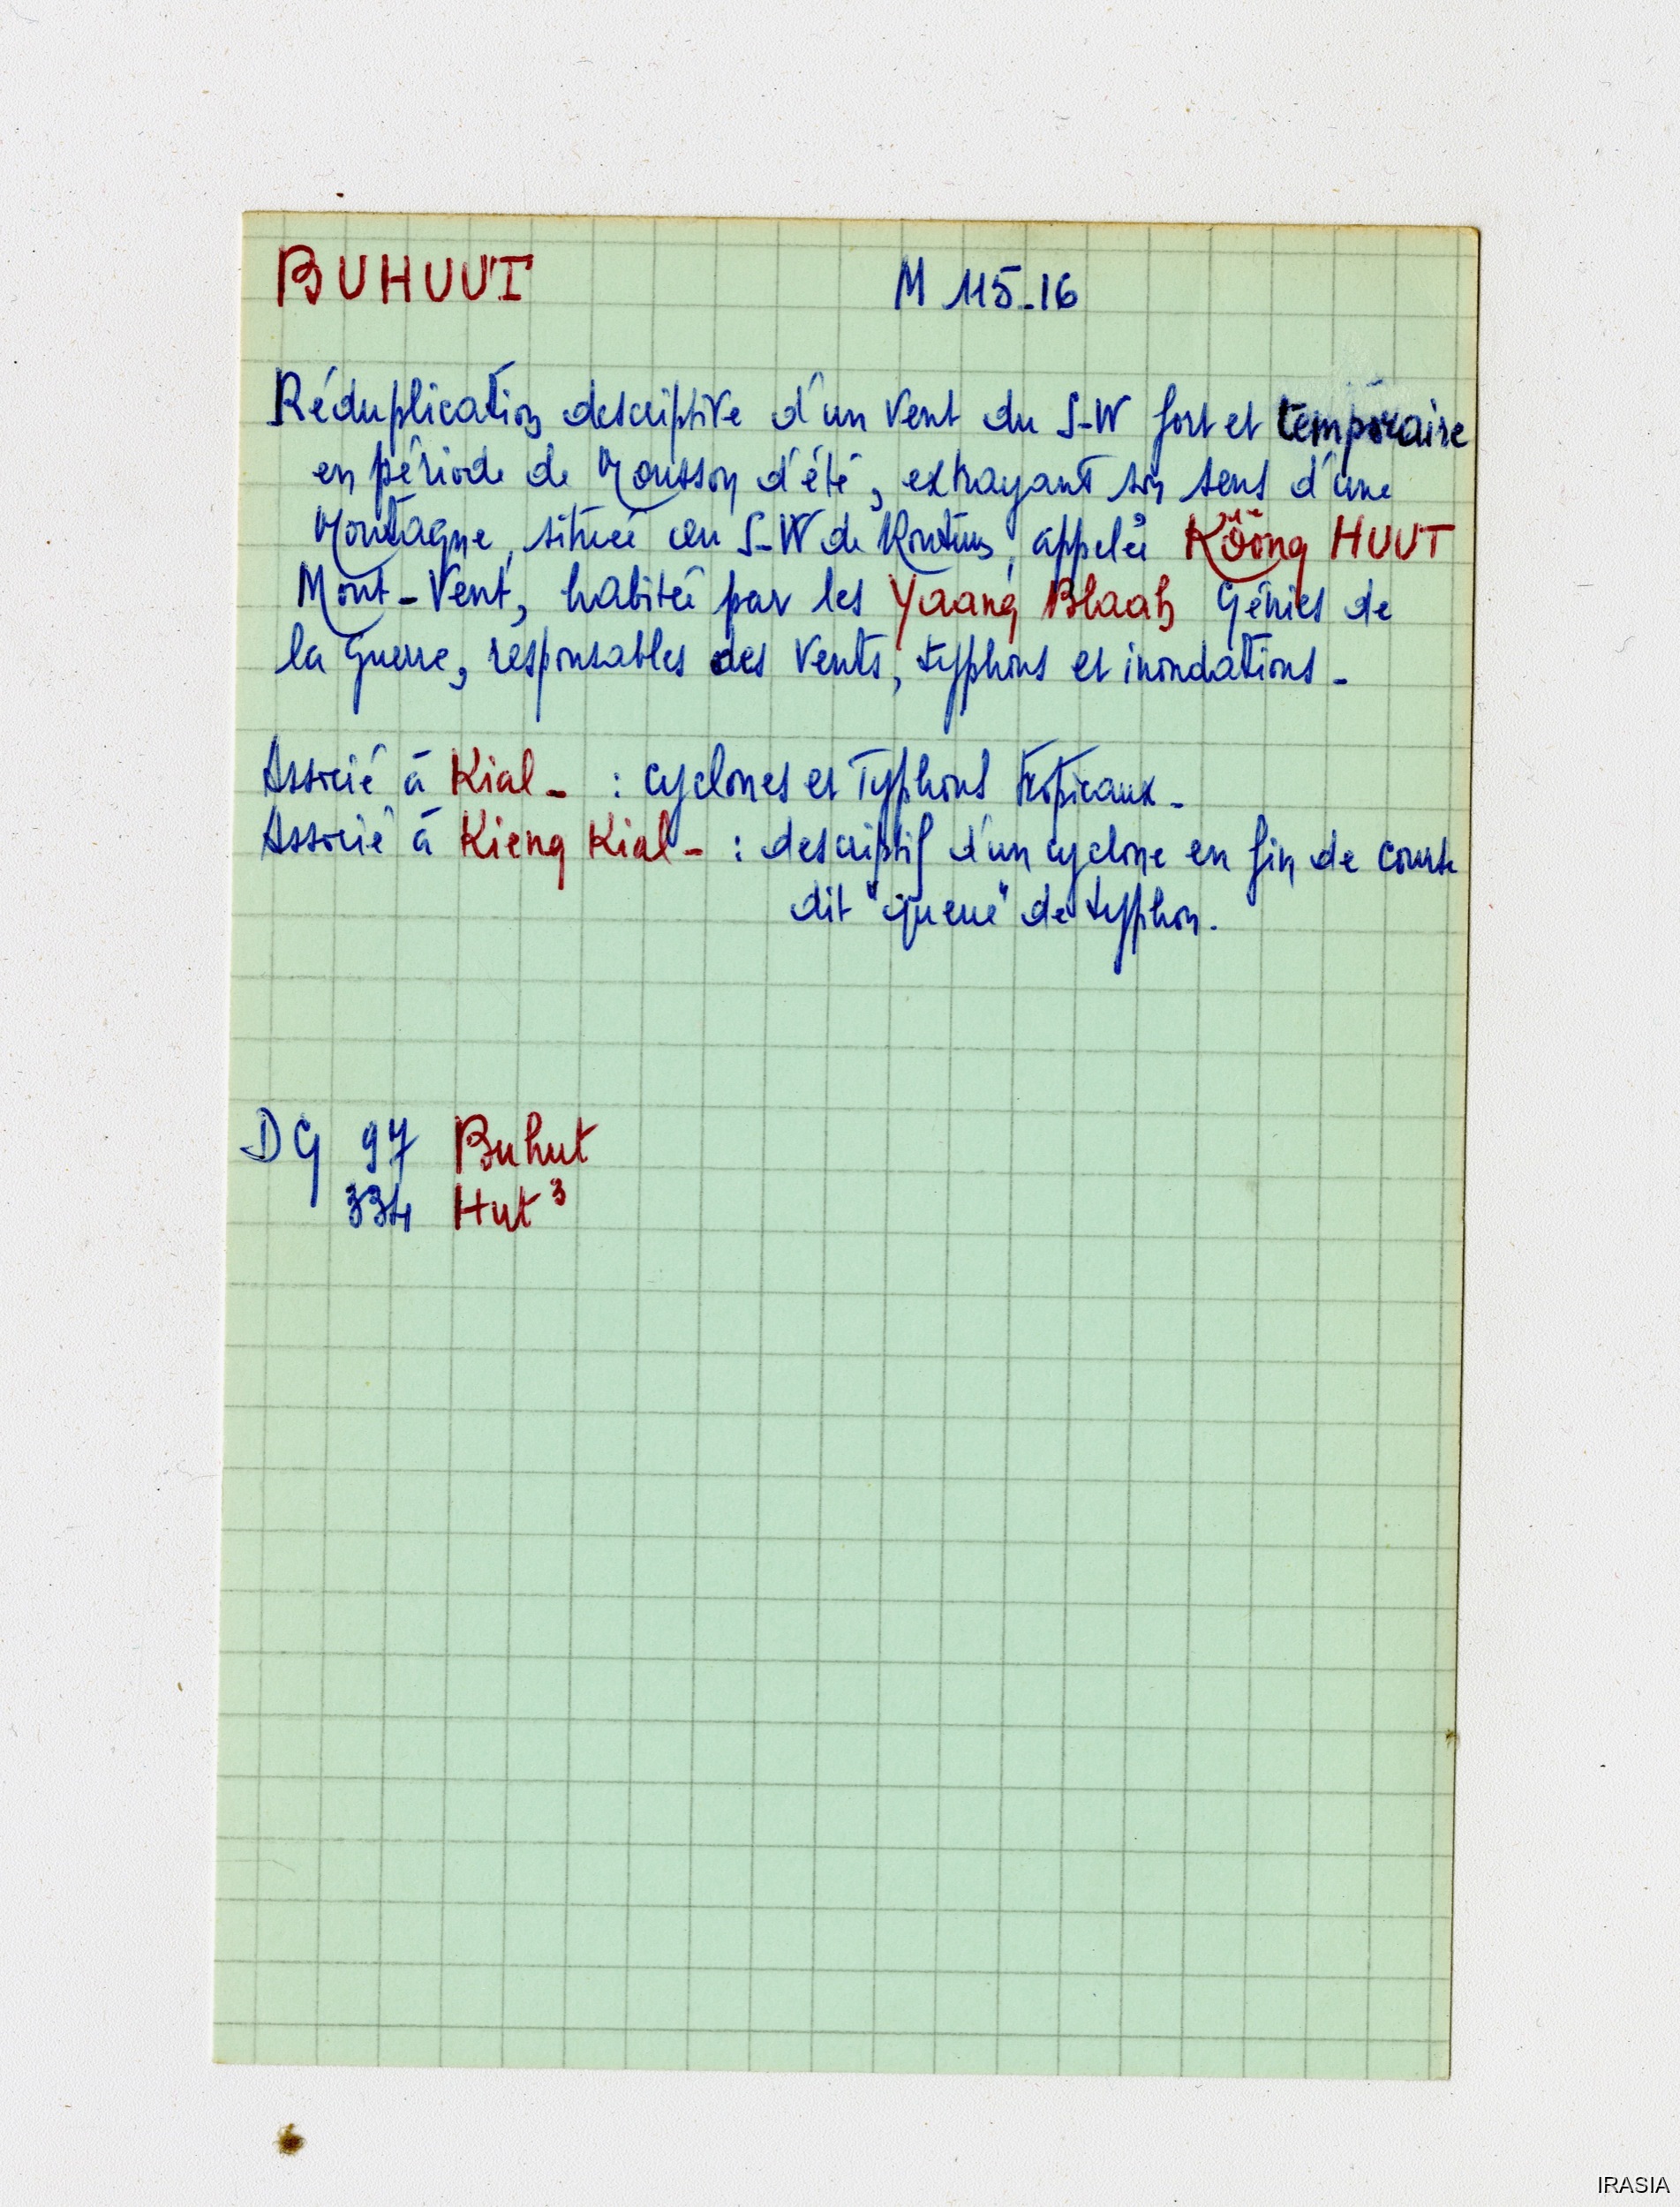 BUHUUT M 115-16
Réduplication descriptive d'un vent du S-W fort et temporaire
en période de Mousson d'été, extrayant son sens d'une
Montagne, située au S-W de Kontum, appelée Kŏŏng HUUT
Mont-Vent, habitée par les Yaang Blaah Génies de
la Guerre, responsables des vents, typhons et inondations -
Associé à Kial - : cyclones et Typhons tropicaux -
Associé à Kieng Kial - : descriptif d'un cyclone en fin de course
dit "queue" de typhon.
DG 97 Buhut
334 Hut³
IRASIA